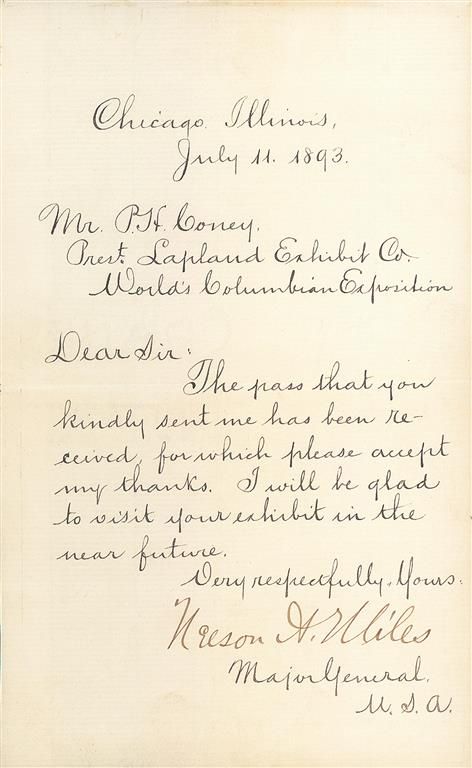 Chicago. Illinois,
July 11. 1893.
Mr. P.H. Coney,
Prest. Lapland Exhibit Co.
World's Columbian Exposition
Dear Sir:
The pass that you
kindly sent me has been re-
ceived, for which please accept
my thanks. I will be glad
to visit your exhibit in the
near future.
Very respectfully, Yours:
Nelson A. Miles
Major General.
U. S. A.